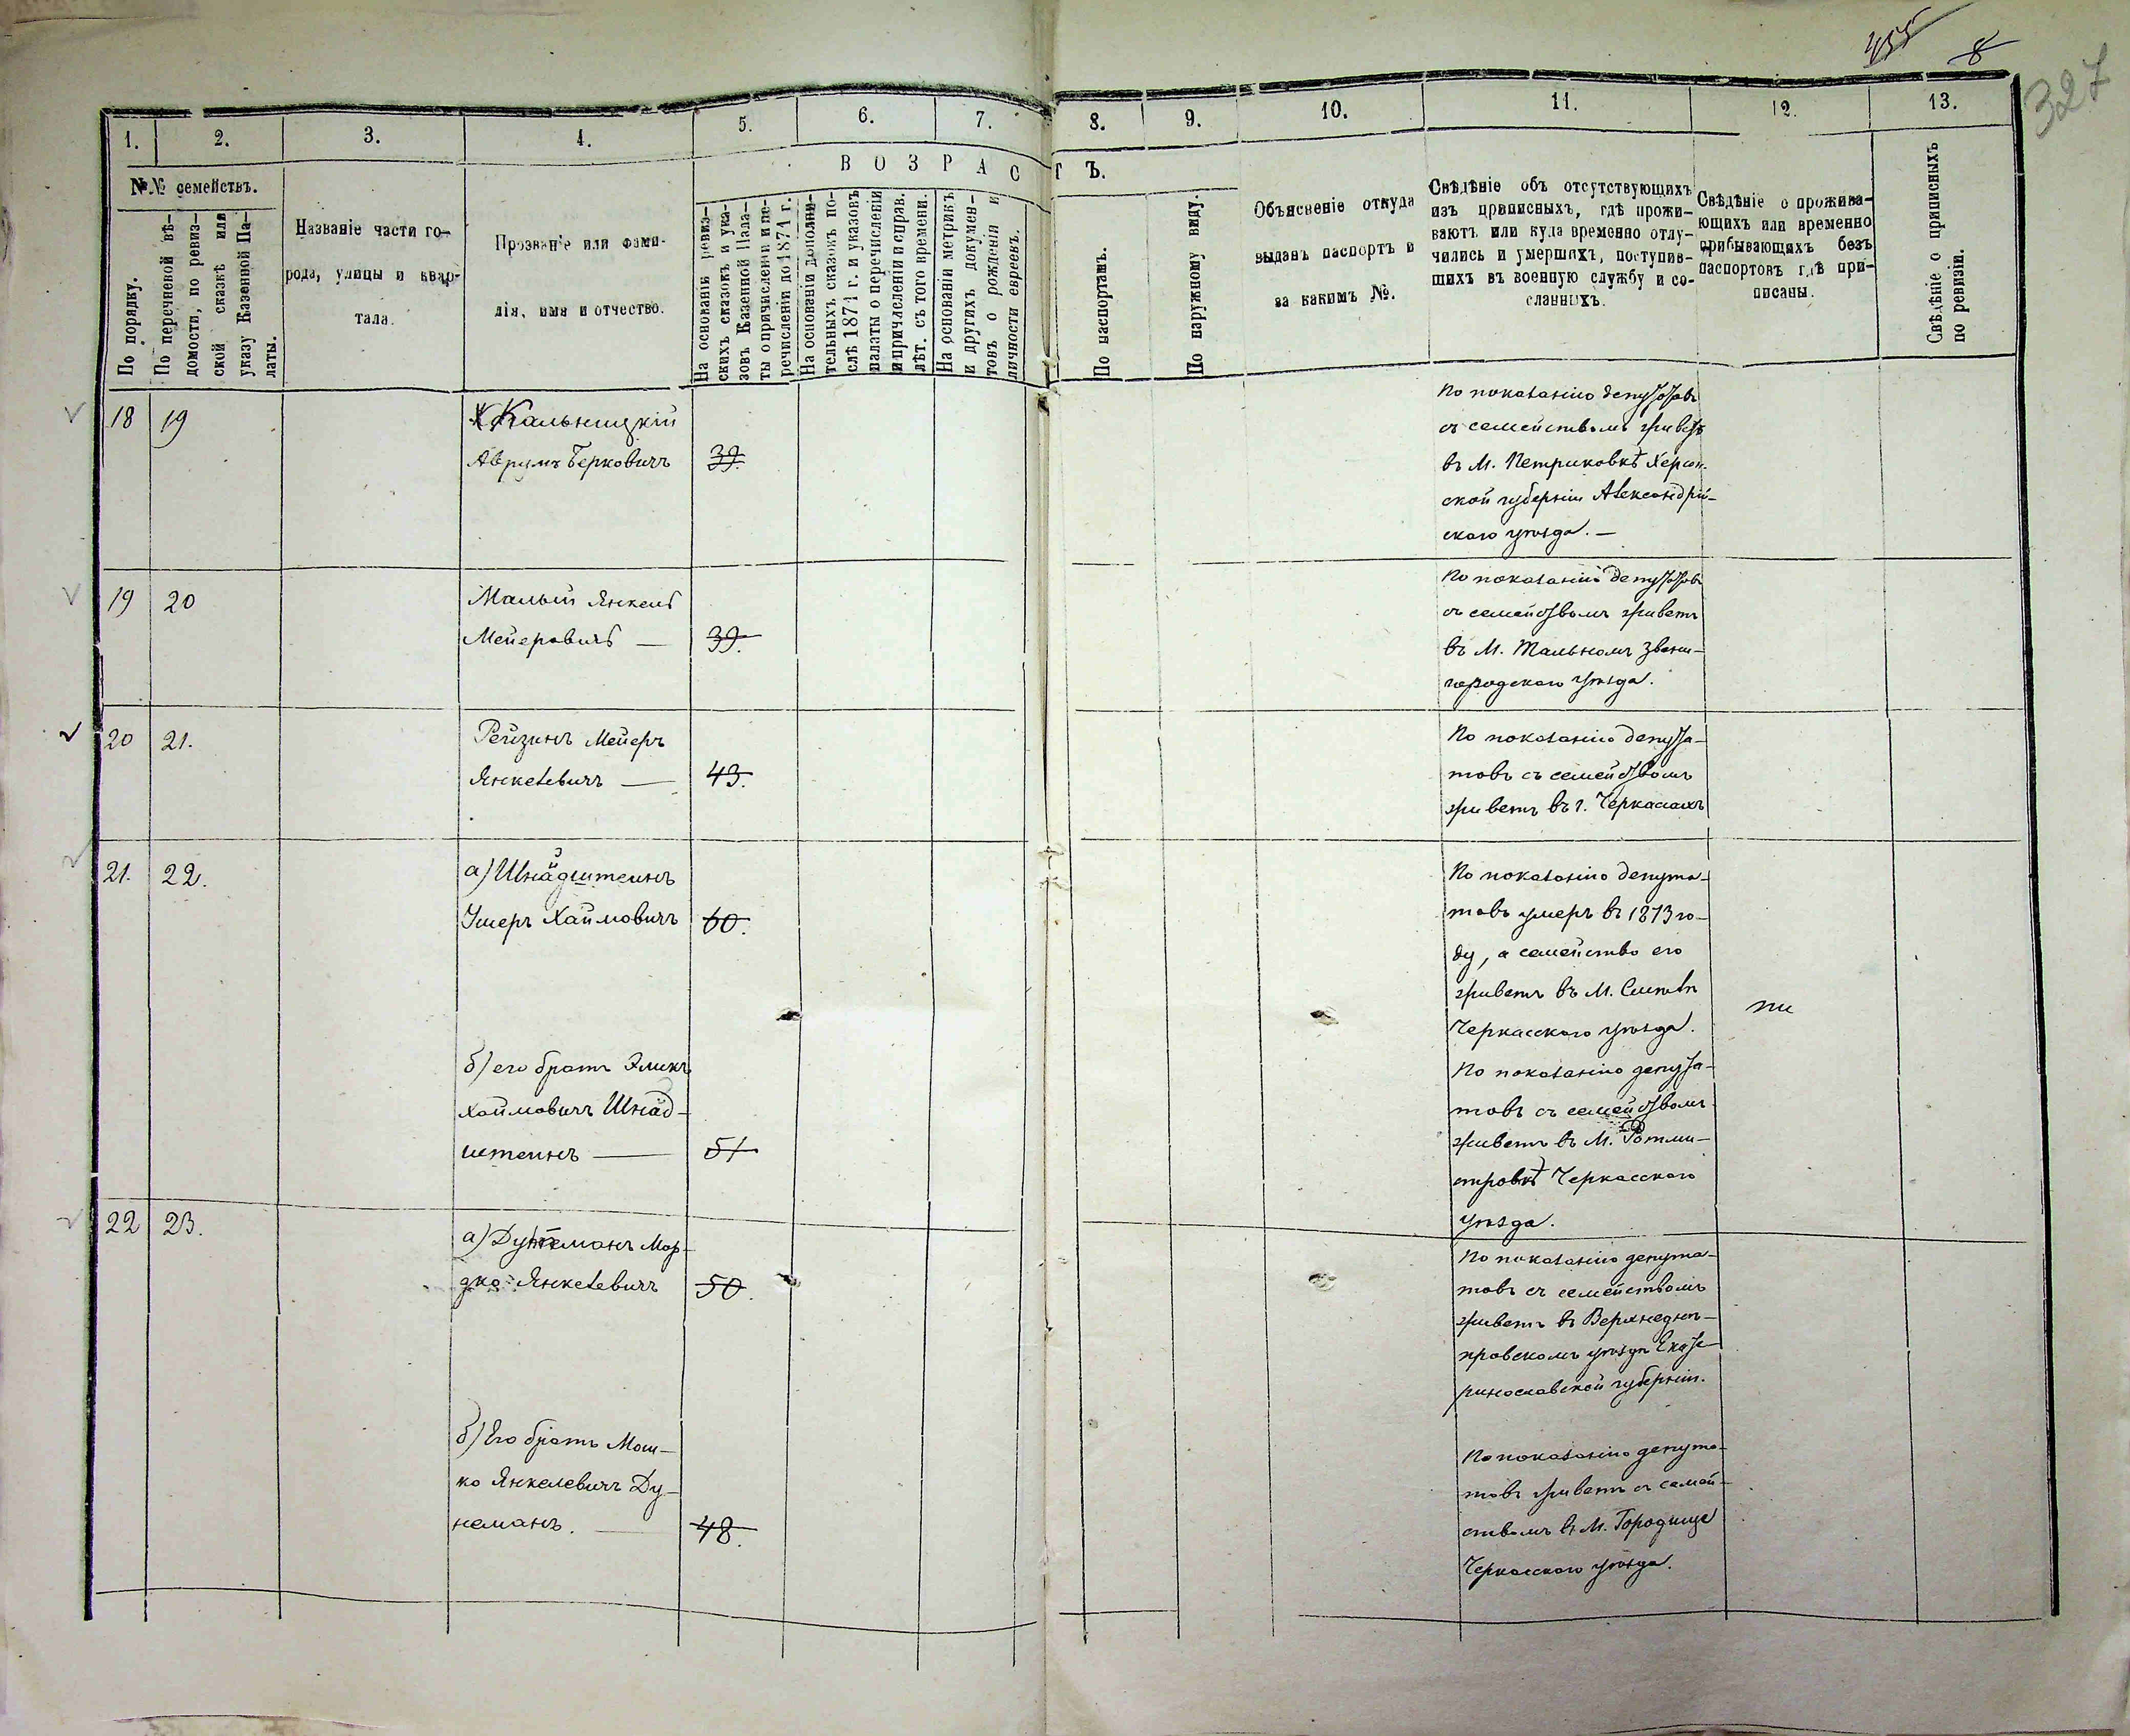 455 8
327
1. 2. 3. 4. 5. 6. 7. 8. 9. 10. 11. 12. 13.
ВОЗРАСТЪ.
№№ семействъ.
По порядку.
По перечневой вѣ-
домости, по ревиз-
ской сказкѣ или
указу Казенной Па-
латы.
Названіе части го-
рода, улицы и квар-
тала.
Прозваніе или фами-
лія, имя и отчество.
На основаніи ревиз-
скихъ сказокъ и ука-
зовъ Казенной Пала-
ты о причисленіи и пе-
речисленіи до 1871 г.
На основаніи дополни-
тельныхъ сказокъ по-
слѣ 1871 г. и указовъ
палаты о перечисленіи
и причисленіи и справ.
лѣт. съ того времени.
На основаніи метрикъ
и другихъ докумен-
товъ о рожденіи и
личности евреевъ.
По паспортамъ.
По наружному виду.
Объясненіе откуда
выданъ паспортъ и
за какимъ №.
Свѣдѣніе объ отсутствующихъ
изъ приписныхъ, гдѣ прожи-
ваютъ или куда временно отлу-
чились и умершихъ, поступив-
шихъ въ военную службу и со-
сланныхъ.
Свѣдѣніе о прожива-
ющихъ или временно
прибывающихъ безъ
паспортовъ гдѣ при-
писаны.
Свѣдѣніе о приписныхъ
по ревизіи.
18 19 Кальницкій
Аврумъ Берковичъ 39.
По показанію депутатовъ
съ семействомъ живетъ
въ М. Петриковкѣ Херсон-
ской губерніи Александрій-
скаго уѣзда. —
19 20 Малый Янкель
Мейеровичъ — 39.
По показанію депутатовъ
съ семействомъ живетъ
въ М. Тальномъ Звени-
городскаго уѣзда.
20 21. Рейзинъ Мейеръ
Янкелевичъ — 43.
По показанію депута-
товъ съ семействомъ
живетъ въ г. Черкасахъ
21. 22. а) Шнадштейнъ
Ушеръ Хаймовичъ 60.
По показанію депута-
товъ умеръ въ 1873 го-
ду, а семейство его
живетъ въ М. Смѣлѣ
Черкасскаго уѣзда.
б) его братъ Эликъ
Хаймовичъ Шнад-
штейнъ — 51
По показанію депута-
товъ съ семействомъ
живетъ въ М. Ротми-
стровкѣ Черкасскаго
уѣзда.
22 23. а) Дунеманъ Мор-
дко Янкелевичъ 50.
По показанію депута-
товъ съ семействомъ
живетъ въ Верхнеднѣ-
провскомъ уѣздѣ Екате-
ринославской губерніи.
б) Его братъ Мош-
ко Янкелевичъ Ду-
неманъ. — 48.
По показанію депута-
товъ живетъ съ семей-
ствомъ въ М. Городище
Черкасскаго уѣзда.